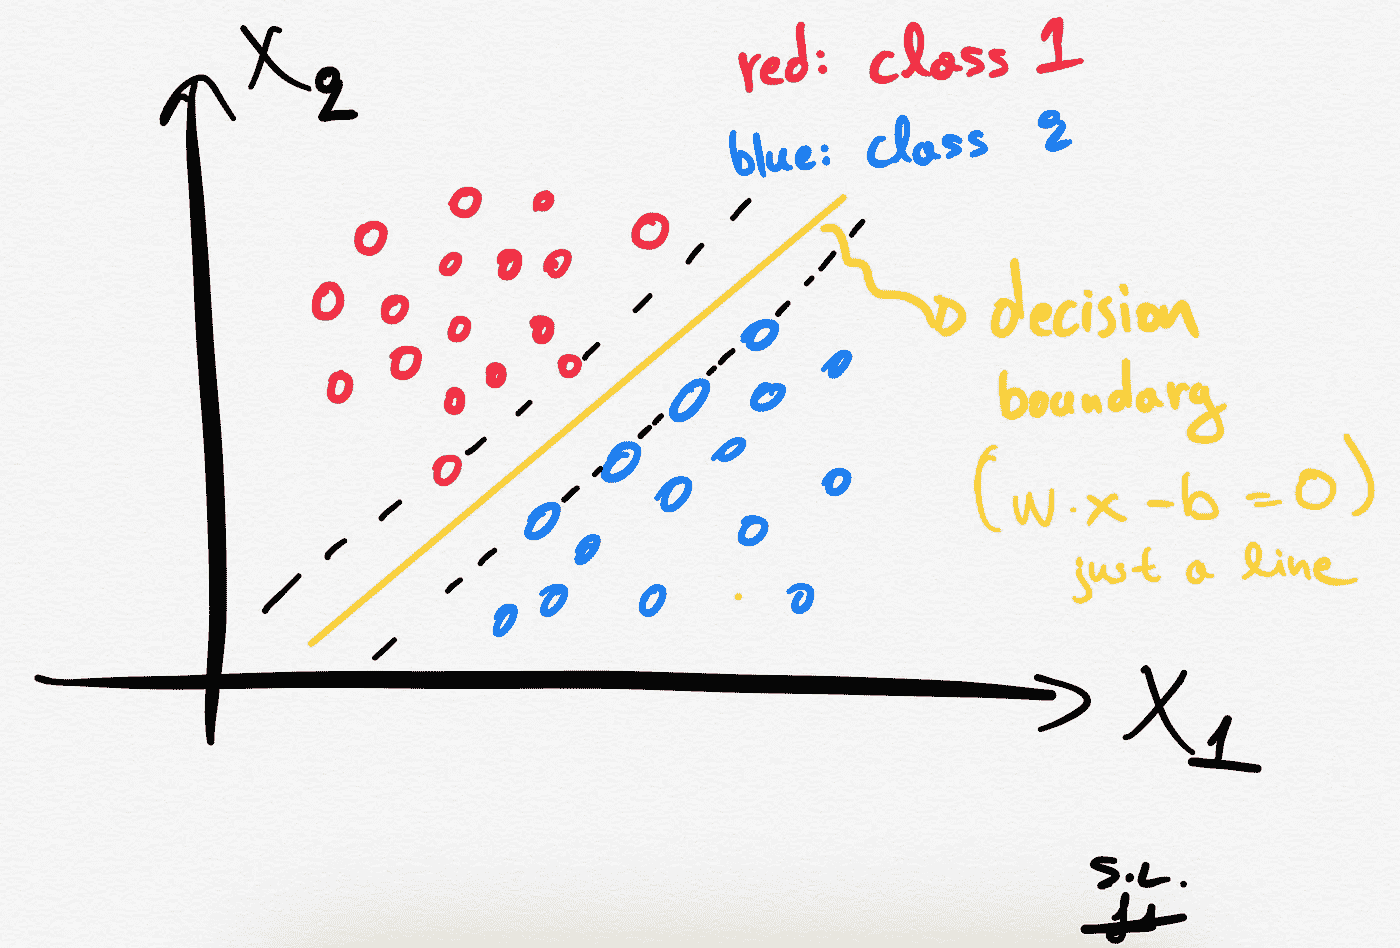 X2
red: class 1
blue: class 2
decision
boundary
(w.x - b = 0)
just a line
X1
S.L.